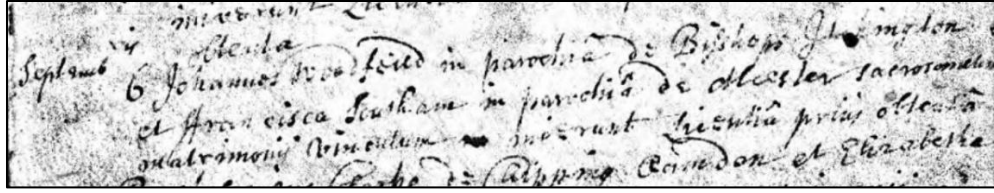 inierunt
obtenta
Septemb 6 Johannes Woodfeild in parochiâ de Bishops Itchington
et Francisca in parochiâ de Alcester sacrosanctum
matrimonij vinculum inierunt Licentiâ prius obtentâ
de Chipping Camden et Elizabetha